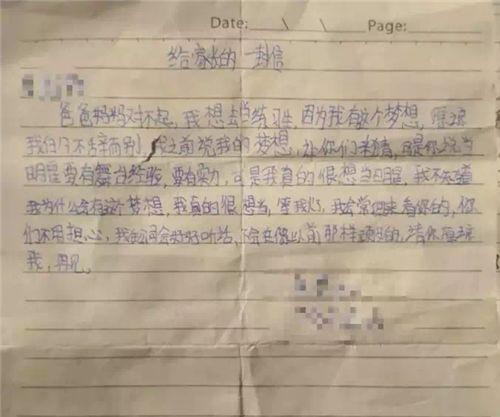 Date: \ \ Page:
给家长的一封信
爸爸妈妈对不起,我想去当练习生,因为我有这个梦想,原谅
我今不辞而别,我之前说我的梦想,让你们猜,可是你说当
明星要有舞台经验,要有实力,可是我真的很想当明星,我不知道
我为什么会有这个梦想,我真的很想当,等我,我会常回来看你的,你
们不用担心,我会好好听话,不会在像以前那样顽的,请你原谅
我,再见。